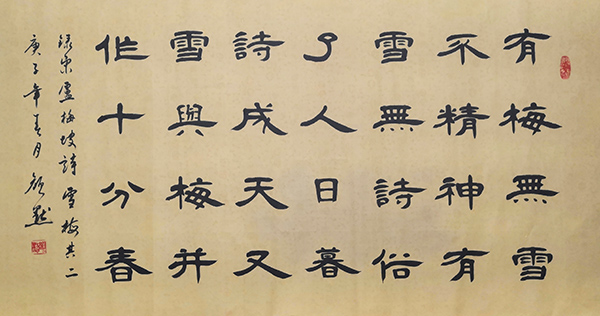 有梅無雪
不精神有
雪無詩俗
了人日暮
詩成天又
雪與梅并
作十分春
録宋盧梅坡詩雪梅其二
庚子年春月